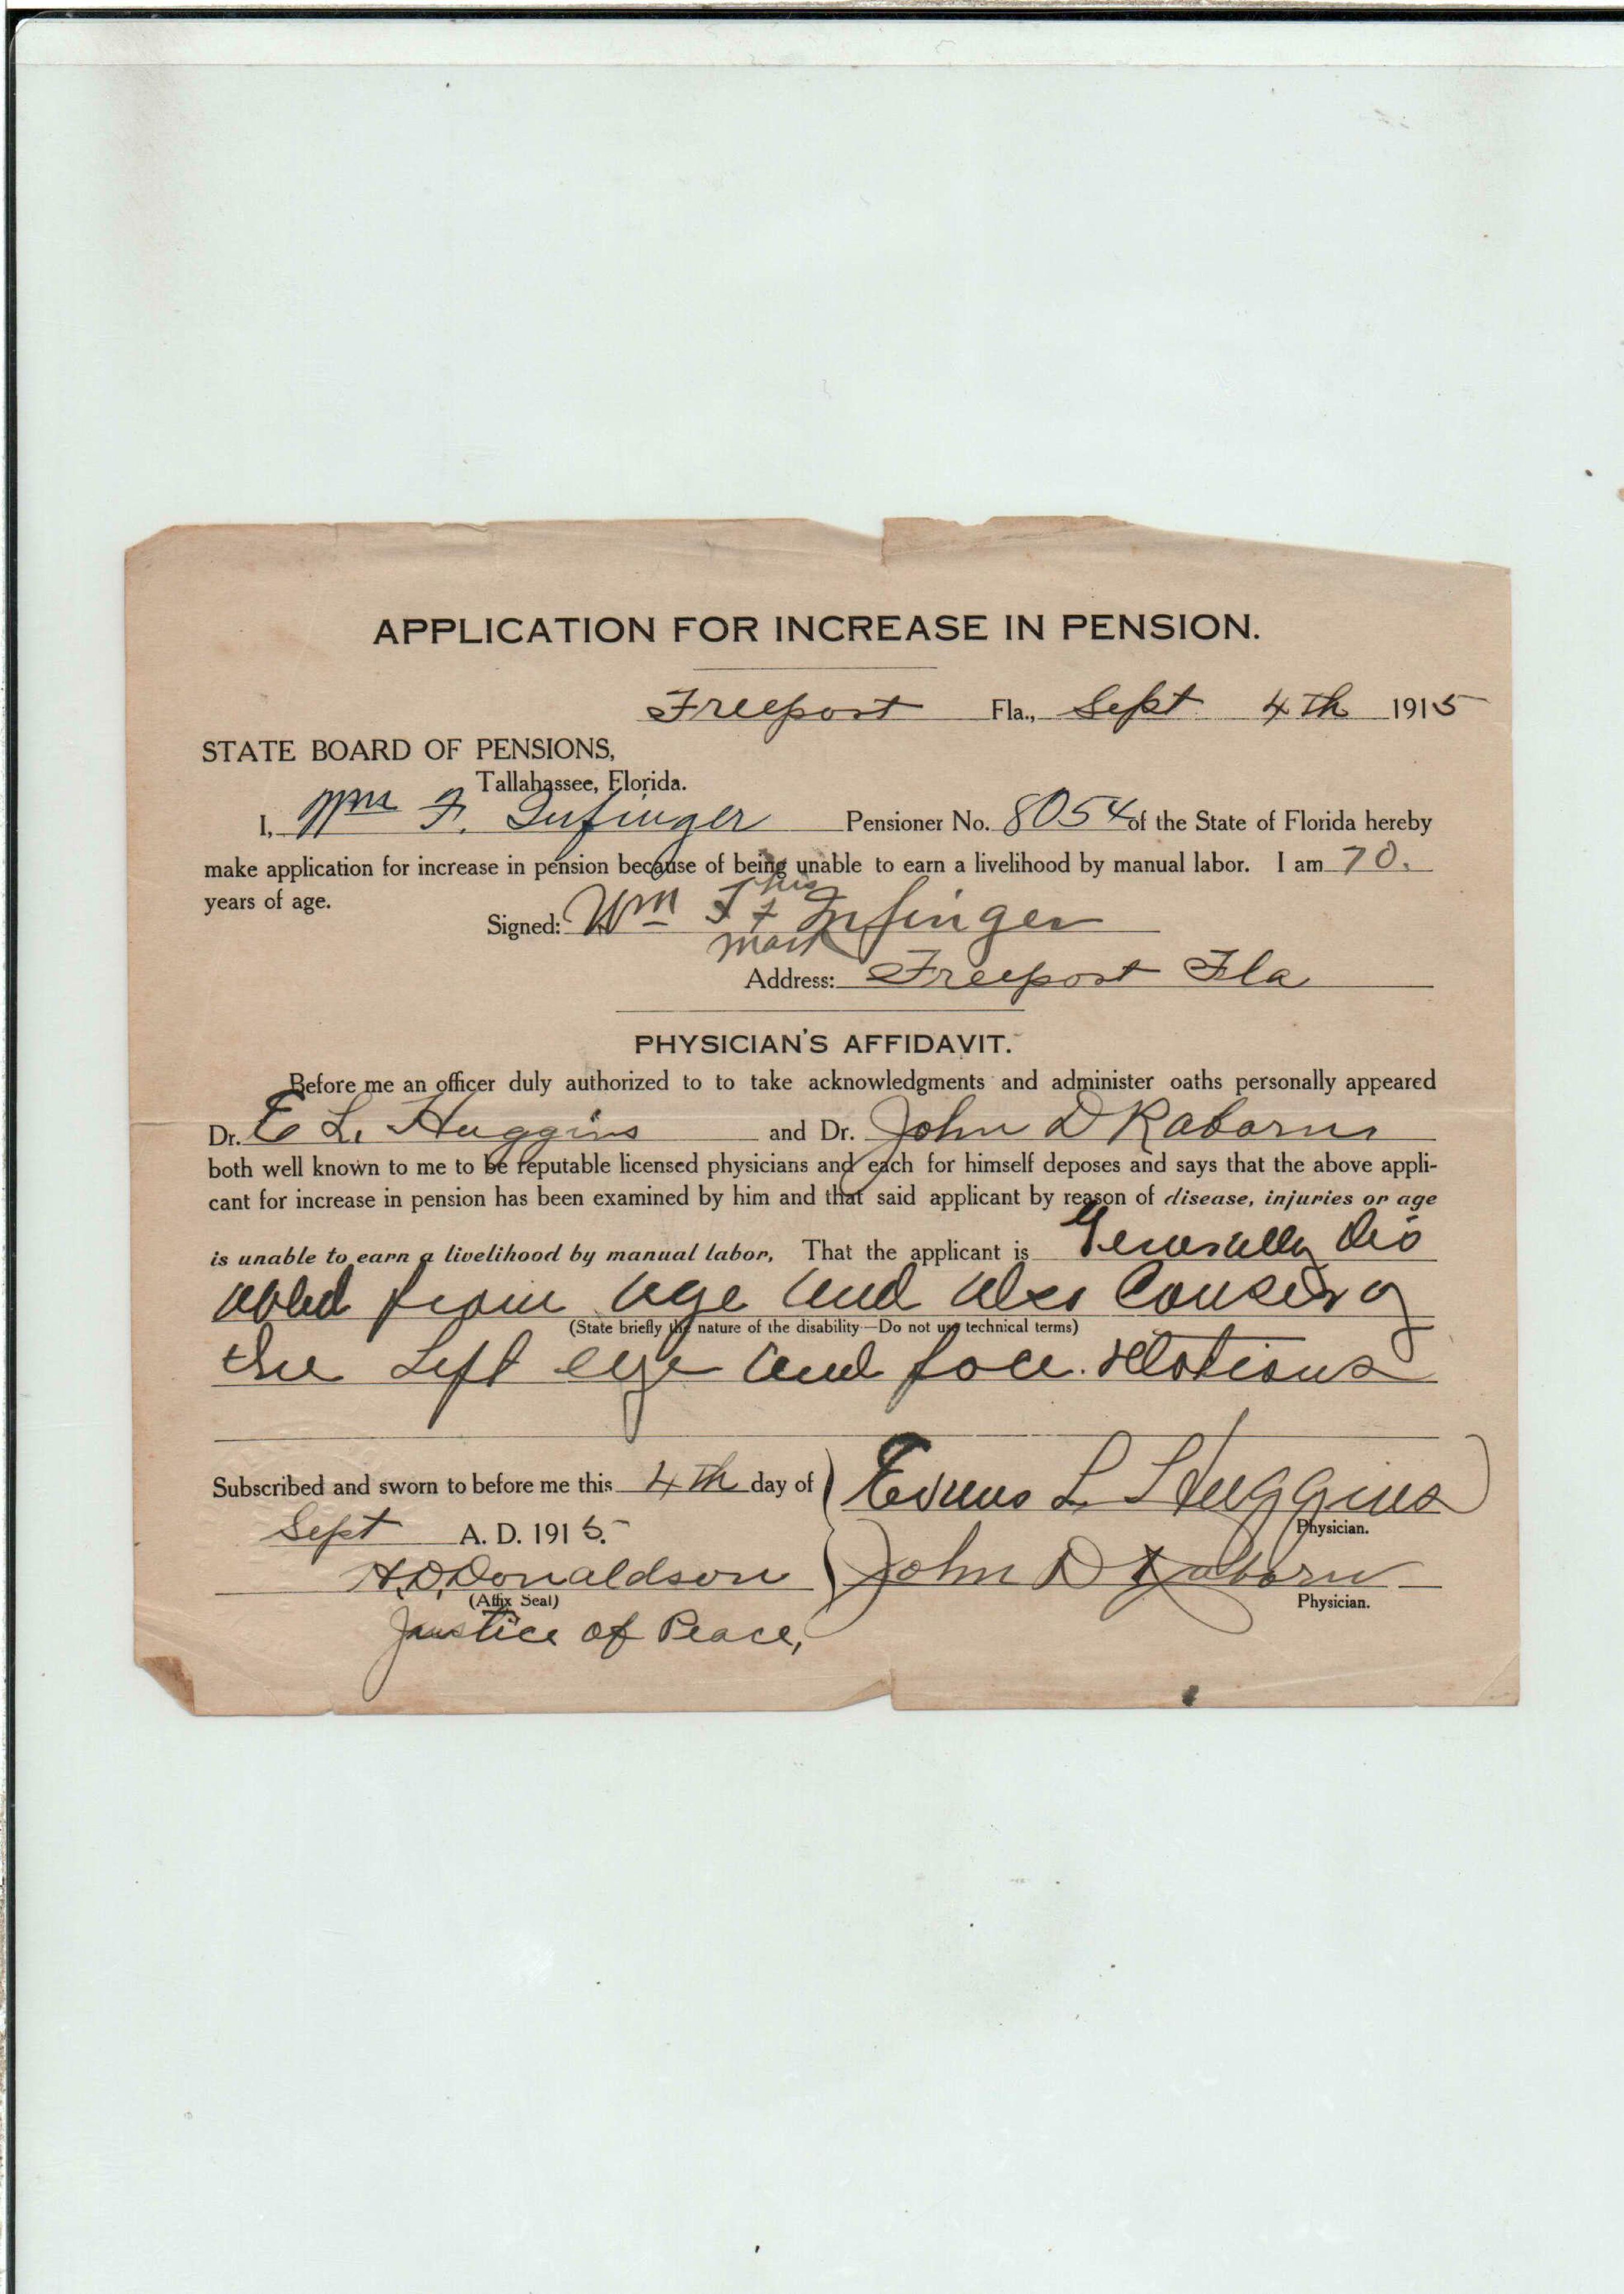 APPLICATION FOR INCREASE IN PENSION.
Freeport Fla., Sept 4th 1915
STATE BOARD OF PENSIONS,
Tallahassee, Florida.
I, Wm F. Infinger Pensioner No. 8054 of the State of Florida hereby
make application for increase in pension because of being unable to earn a livelihood by manual labor. I am 70.
years of age.
his
Signed: Wm F x Infinger
mark
Address: Freeport Fla
PHYSICIAN'S AFFIDAVIT.
Before me an officer duly authorized to to take acknowledgments and administer oaths personally appeared
Dr. E L. Huggins and Dr. John D Raborn
both well known to me to be reputable licensed physicians and each for himself deposes and says that the above appli-
cant for increase in pension has been examined by him and that said applicant by reason of disease, injuries or age
is unable to earn a livelihood by manual labor, That the applicant is Generally dis
abled from age and also
(State briefly the nature of the disability—Do not use technical terms)
the left eye and face.
Subscribed and sworn to before me this 4th day of
L Huggins
Physician.
Sept A. D. 1915.
H.D. Donaldson
John D Raborn
(Affix Seal)
Physician.
Justice of Peace,